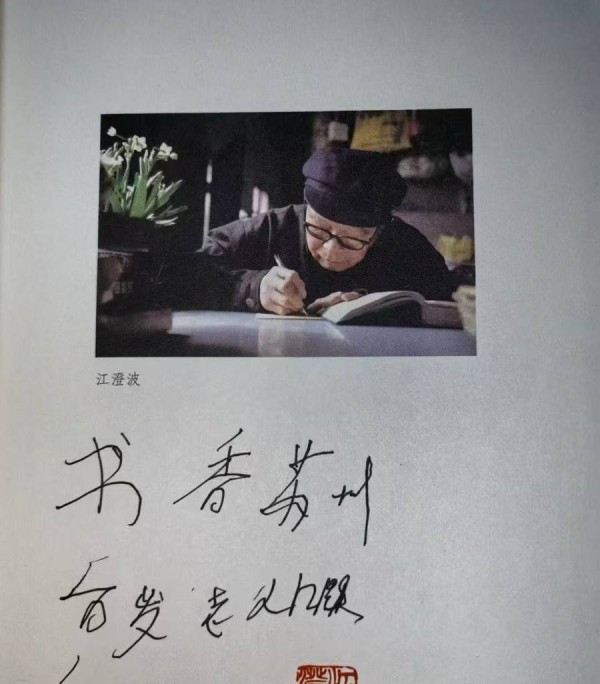 江澄波
书香苏州
百岁老人江题